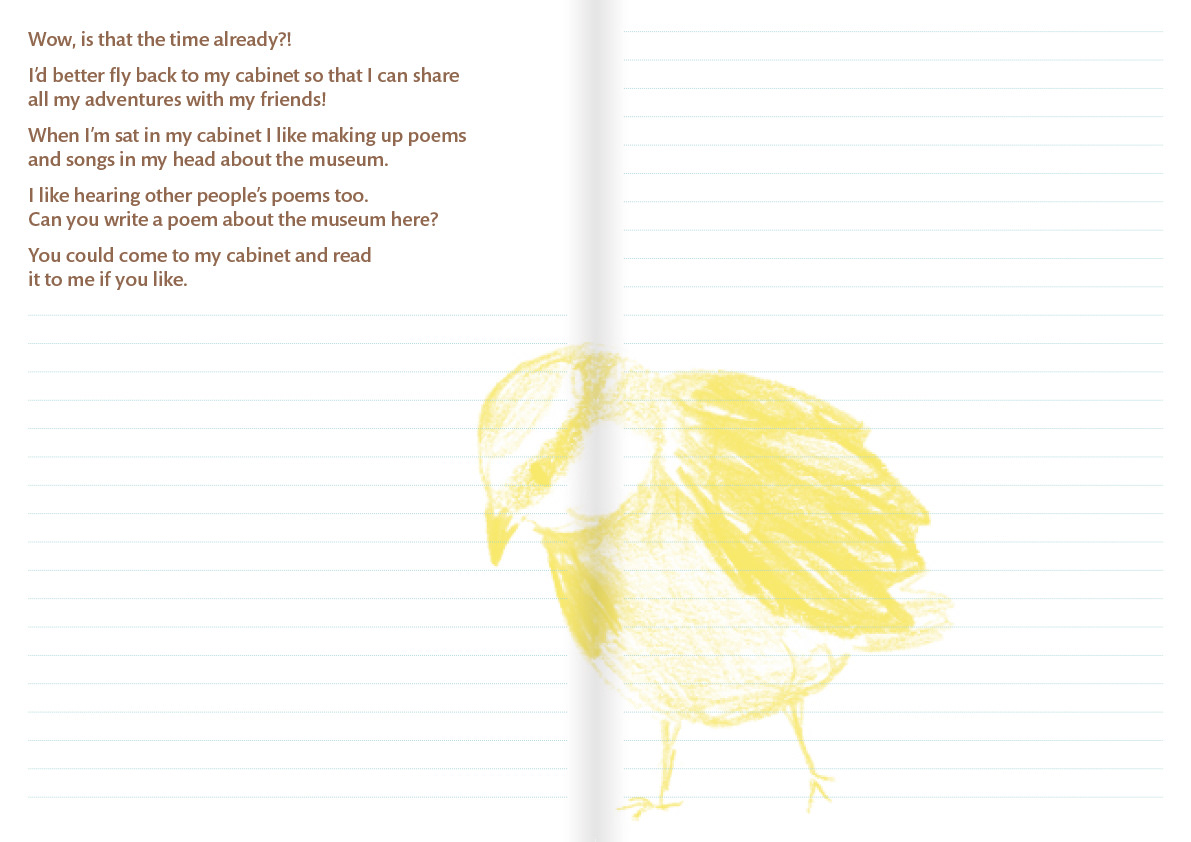 Wow, is that the time already?!
I’d better fly back to my cabinet so that I can share
all my adventures with my friends!
When I’m sat in my cabinet I like making up poems
and songs in my head about the museum.
I like hearing other people’s poems too.
Can you write a poem about the museum here?
You could come to my cabinet and read
it to me if you like.